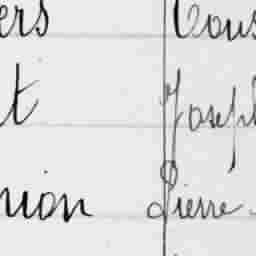 ers Cous
t Joseph
nion Pierre